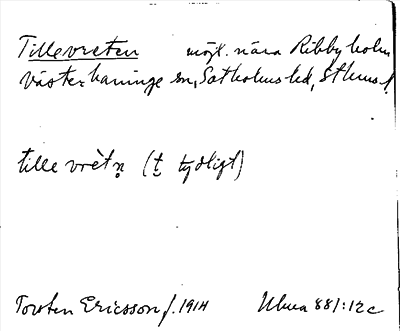 Tillevreten möjl. nära Ribbyholm
Västerhaninge sn, Sotholms hd, Sthms l.
tille vrètn̥ (t tydligt)
Torsten Ericsson f. 1914 Uhna 881:12c